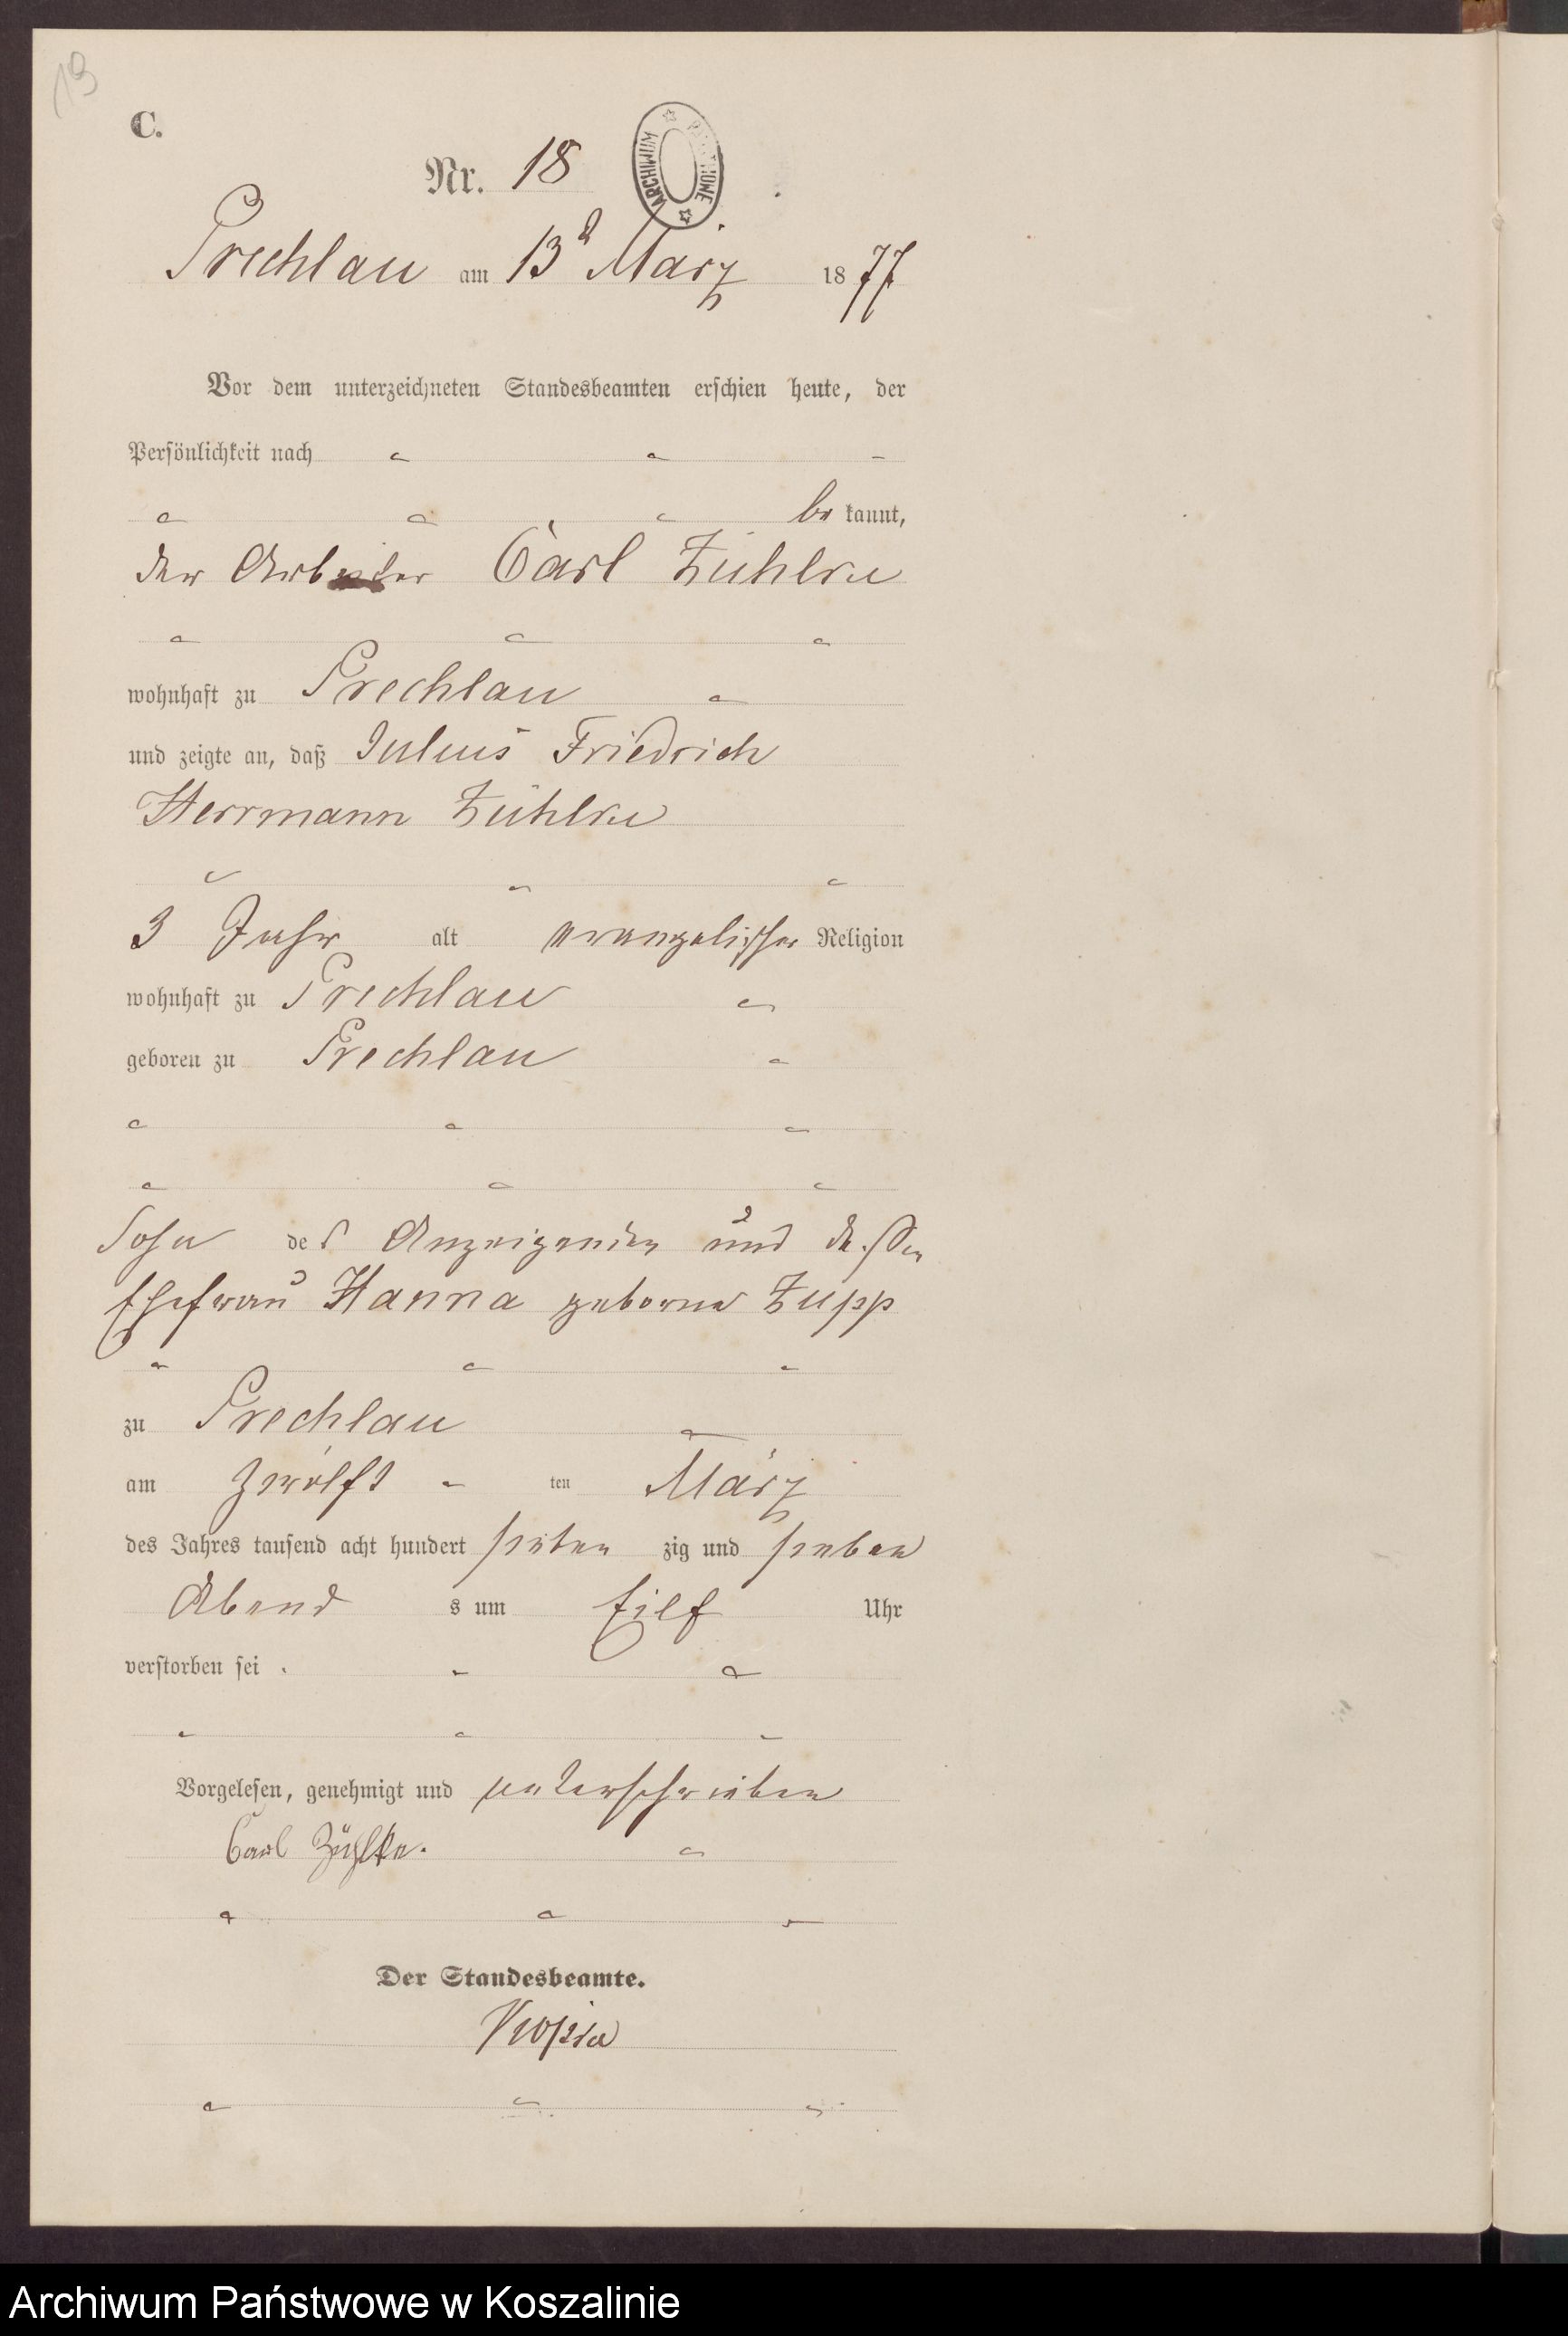 19
C.
Nr. 18
ARCHIWUM PAŃSTWOWE
Prechlau am 13 März 1877
Vor dem unterzeichneten Standesbeamten erschien heute, der
Persönlichkeit nach
be kannt,
der Arbeiter Carl Zühlke
wohnhaft zu Prechlau
und zeigte an, daß Julius Friedrich
Herrmann Zühlke
3 Jahr alt evangelischer Religion
wohnhaft zu Prechlau
geboren zu Prechlau
Sohn des Anzeigenden und dessen
Ehefrau Hanna geborne Zupp
zu Prechlau
am zwölft ten März
des Jahres tausend acht hundert sieben zig und sieben
Abend s um Eilf Uhr
verstorben sei.
Vorgelesen, genehmigt und unterschrieben
Carl Zühlke.
Der Standesbeamte.
Archiwum Państwowe w Koszalinie